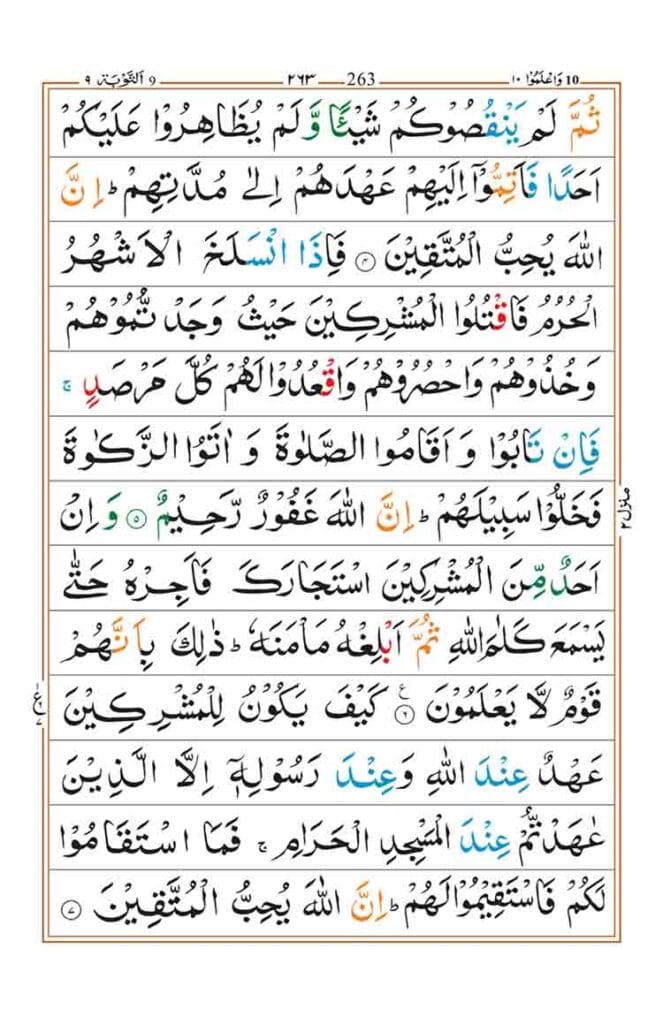 10 وَاعْلَمُوْٓا ١٠ 263 ٢٦٣ 9 اَلتَّوْبَة ٩
ثُمَّ لَمْ يَنْقُصُوْكُمْ شَيْـًٔا وَّ لَمْ يُظَاهِرُوْا عَلَيْكُمْ
اَحَدًا فَاَتِمُّوْۤا اِلَيْهِمْ عَهْدَهُمْ اِلٰى مُدَّتِهِمْ ؕ اِنَّ
اللّٰهَ يُحِبُّ الْمُتَّقِيْنَ ﴿۴﴾ فَاِذَا انْسَلَخَ الْاَشْهُرُ
الْحُرُمُ فَاقْتُلُوا الْمُشْرِكِيْنَ حَيْثُ وَجَدْتُّمُوْهُمْ
وَخُذُوْهُمْ وَاحْصُرُوْهُمْ وَاقْعُدُوْا لَهُمْ كُلَّ مَرْصَدٍ ۚ
فَاِنْ تَابُوْا وَ اَقَامُوا الصَّلٰوةَ وَ اٰتَوُا الزَّكٰوةَ
فَخَلُّوْا سَبِيْلَهُمْ ؕ اِنَّ اللّٰهَ غَفُوْرٌ رَّحِيْمٌ ﴿۵﴾ وَ اِنْ
اَحَدٌ مِّنَ الْمُشْرِكِيْنَ اسْتَجَارَكَ فَاَجِرْهُ حَتّٰى
يَسْمَعَ كَلٰمَ اللّٰهِ ثُمَّ اَبْلِغْهُ مَاْمَنَهٗ ؕ ذٰلِكَ بِاَنَّهُمْ
قَوْمٌ لَّا يَعْلَمُوْنَ ﴿۶﴾ ع كَيْفَ يَكُوْنُ لِلْمُشْرِكِيْنَ
عَهْدٌ عِنْدَ اللّٰهِ وَعِنْدَ رَسُوْلِهٖۤ اِلَّا الَّذِيْنَ
عٰهَدْتُّمْ عِنْدَ الْمَسْجِدِ الْحَرَامِ ۚ فَمَا اسْتَقَامُوْا
لَكُمْ فَاسْتَقِيْمُوْا لَهُمْ ؕ اِنَّ اللّٰهَ يُحِبُّ الْمُتَّقِيْنَ ﴿۷﴾
منزل ۲